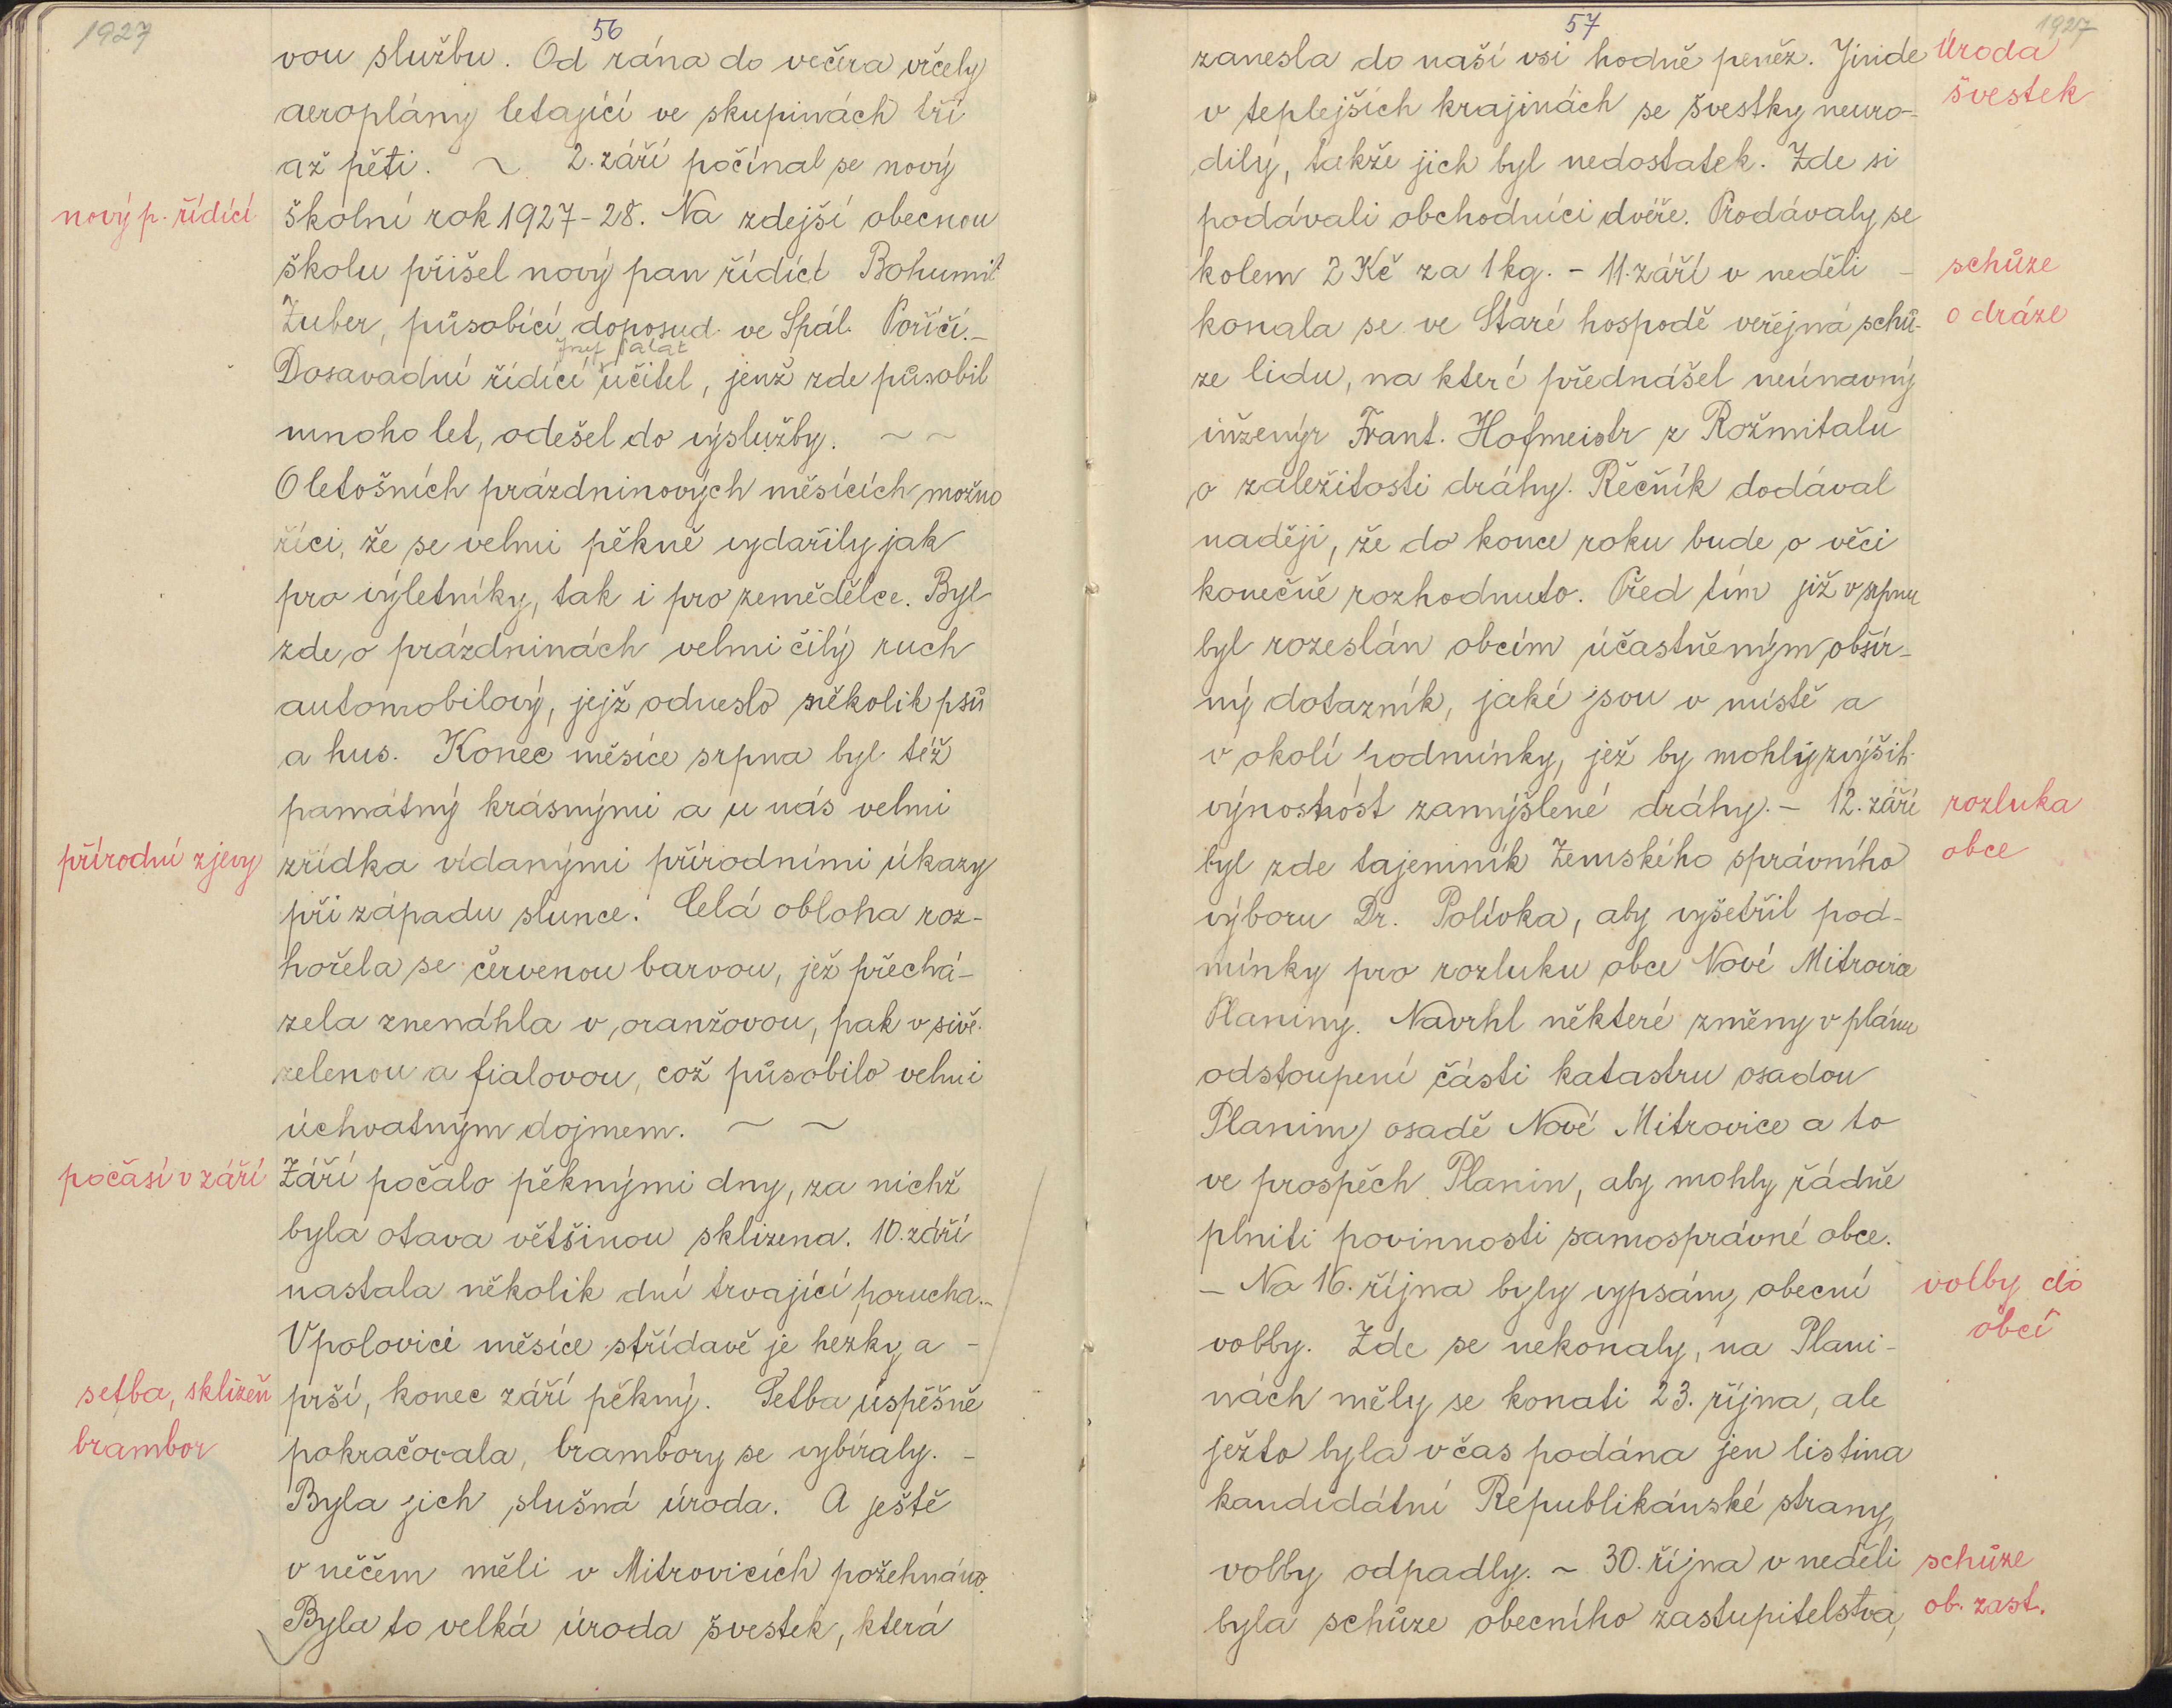 1927
56
vou službu. Od rána do večera vrčely
aeroplány letající ve skupinách tří
až pěti. ~ 2. září počínal se nový
nový p. řídící
školní rok 1927-28. Na zdejší obecnou
školu přišel nový pan řídící Bohumil
Zuber, působící doposud ve Spál. Poříčí. –
Josef Palat
Dosavadní řídící učitel, jenž zde působil
mnoho let, odešel do výslužby. ~ ~
O letošních prázdninových měsících možno
říci, že se velmi pěkně vydařily jak
pro výletníky, tak i pro zemědělce. Byl
zde o prázdninách velmi čilý ruch
automobilový, jejž odneslo několik psů
a hus. Konec měsíce srpna byl též
památný krásnými a u nás velmi
přírodní zjevy
zřídka vídanými přírodními úkazy
při západu slunce. Celá obloha roz-
hořela se červenou barvou, jež přechá-
zela znenáhla v oranžovou, pak v sivě
zelenou a fialovou, což působilo velmi
úchvatným dojmem. ~ ~
počasí v září
Září počalo pěknými dny, za nichž
byla otava většinou sklizena. 10. září
nastala několik dní trvající porucha. –
V polovici měsíce střídavě je hezky a –
setba, sklizeň
brambor
prší, konec září pěkný. Setba úspěšně
pokračovala, brambory se vybíraly. –
Byla jich slušná úroda. A ještě
v něčem měli v Mitrovicích požehnáno.
Byla to velká úroda švestek, která
57
1927
zanesla do naší vsi hodně peněz. Jinde
Úroda
švestek
v teplejších krajinách se švestky neuro-
dily, takže jich byl nedostatek. Zde si
podávali obchodníci dvéře. Prodávaly se
kolem 2 Kč za 1 kg. – 11. září v neděli –
schůze
o dráze
konala se ve Staré hospodě veřejná schů-
ze lidu, na které přednášel neúnavný
inženýr Frant. Hofmeistr z Rožmitalu
o zaležitosti dráhy. Řečník dodával
naději, že do konce roku bude o věci
konečně rozhodnuto. Před tím již v srpnu
byl rozeslán obcím účastněným obšír-
ný dotazník, jaké jsou v místě a
v okolí podmínky, jež by mohly zvýšit
výnosnost zamýšlené dráhy. – 12. září
rozluka
obce
byl zde tajemník Zemského správního
výboru Dr. Polívka, aby vyšetřil pod-
mínky pro rozluku obce Nové Mitrovice
Planiny. Navrhl některé změny v plánu
odstoupení části katastru osadou
Planiny osadě Nové Mitrovice a to
ve prospěch Planin, aby mohly řádně
plniti povinnosti samosprávné obce.
– Na 16. října byly vypsány obecní
volby do
obcí
volby. Zde se nekonaly, na Plani-
nách měly se konati 23. října, ale
ježto byla včas podána jen listina
kandidátní Republikánské strany,
volby odpadly. ~ 30. října v neděli
schůze
ob. zast.
byla schůze obecního zastupitelstva,